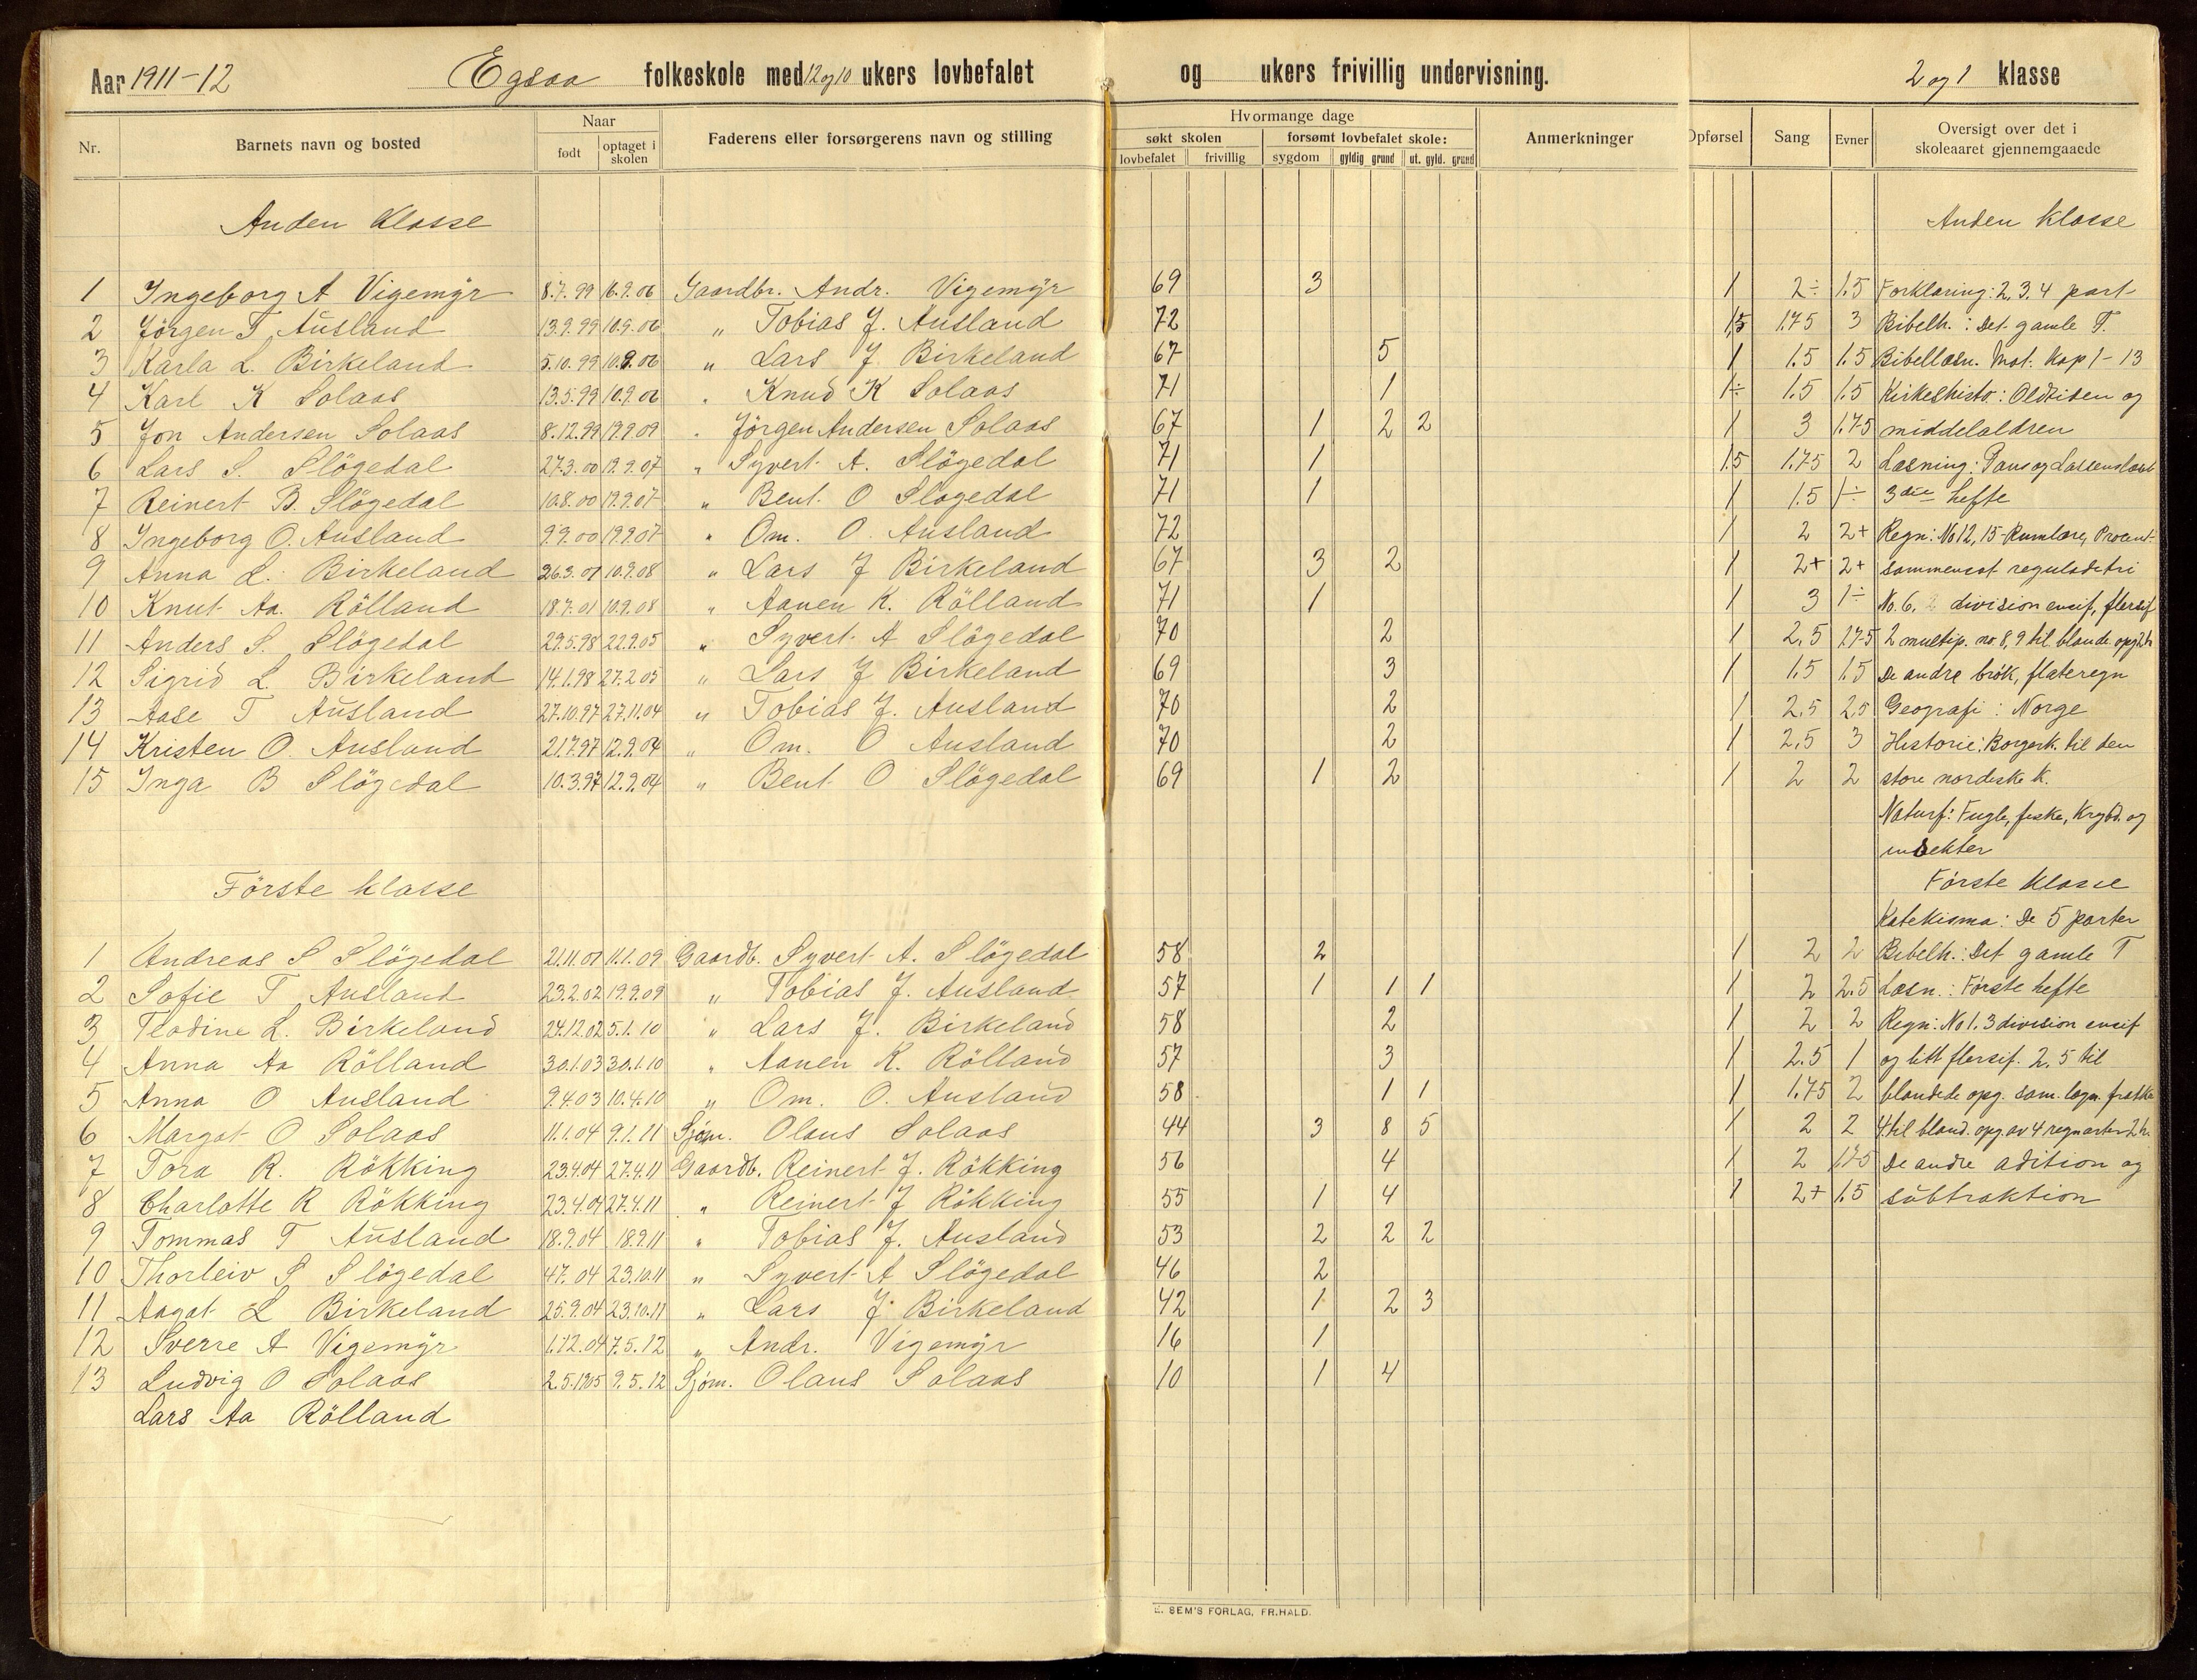 Aar 1911-12 Egsaa folkeskole med 12 og 10 ukers lovbefalet og ukers frivillig undervisning. 2 og 1 klasse
Nr. Barnets navn og bosted Naar født optaget i skolen Faderens eller forsørgerens navn og stilling Hvormange dage søkt skolen lovbefalet frivillig forsømt lovbefalet skole: sygdom gyldig grund ut. gyld. grund Anmerkninger Opførsel Sang Evner Oversigt over det i skoleaaret gjennemgaaede
Anden Klasse Anden Klasse
1 Ingeborg A Vigemÿr 8.7.99 16.9.06 Gaardbr. Andr. Vigemÿr 69 3 1 2÷ 1.5 Forklaring: 2, 3, 4 part
2 Jörgen T Ausland 13.9.99 10.9.06 " Tobias J. Ausland 72 1,5 1.75 3 Bibelh.: Det gamle T.
3 Karla L. Birkeland 5.10.99 10.9.06 " Lars J. Birkeland 67 5 1 1.5 1.5 Bibellæsn. Mat. Kap 1-13
4 Karl K Solaas 13.5.99 10.9.06 " Knud K Solaas 71 1 1÷ 1.5 1.5 Kirkehisto: Oldtiden og
5 Jon Andersen Solaas 8.12.99 19.9.09 " Jörgen Andersen Solaas 67 1 2 2 1 3 1.75 middelaldren
6 Lars S. Slögedal 27.3.00 19.9.07 " Syvert A. Slögedal 71 1 1.5 1.75 2 Læsning: Paus og Lassens læseb
7 Reinert B. Slögedal 10.8.00 19.9.07 " Bent O Slögedal 71 1 1 1.5 1÷ 3die hefte
8 Ingeborg O. Ausland 9.9.00 19.9.07 " Om. O. Ausland 72 1 2 2+ Regn: No 12, 15 Rumlære, Procent
9 Anna L. Birkeland 26.3.01 10.9.08 " Lars J Birkeland 67 3 2 1 2+ 2+ sammensat reguladetri
10 Knut Aa. Rölland 18.7.01 10.9.08 " Aanen K. Rölland 71 1 1 3 1÷ No. 6. 2 division ensif, flersif
11 Anders S. Slögedal 29.5.98 22.9.05 " Syvert A Slögedal 70 2 1 2,5 2.75 2 multip. no 8, 9 til bland. opg 2 h
12 Sigrid L. Birkeland 14.1.98 27.2.05 " Lars J Birkeland 69 3 1 1.5 1.5 De andre brök, flateregn
13 Aase T Ausland 27.10.97 27.11.04 " Tobias J. Ausland 70 2 1 2,5 2,5 Geografi: Norge
14 Kristen O. Ausland 21.7.97 12.9.04 " Om. O Ausland 70 2 1 2,5 3 Historie: Borgerk. til den
15 Inga B Slögedal 10.3.97 12.9.04 " Bent O Slögedal 69 1 2 1 2 2 store nordiske k.
Naturf: Fugle, fiske, Krybd. og
insekter
Förste klasse Förste Klasse
Katekisma: De 5 parter
1 Andreas S Slögedal 21.11.01 11.1.09 Gaardb. Syvert A. Slögedal 58 2 1 2 2 Bibelh.: Det gamle T
2 Sofie T Ausland 23.2.02 19.9.09 " Tobias J. Ausland 57 1 1 1 1 2 2.5 Læsn.: Förste hefte
3 Teodine L. Birkeland 24.12.02 5.1.10 " Lars J. Birkeland 58 2 1 2 2 Regn: No 1. 3 division ensif
4 Anna Aa Rölland 30.1.03 30.1.10 " Aanen K. Rölland 57 3 1 2.5 1 og litt flersif. 2, 5 til
5 Anna O Ausland 9.4.03 10.4.10 " Om. O. Ausland 58 1 1 1 1.75 2 blandede opg. sam. lægn. fratræk
6 Margot O Solaas 11.1.04 9.1.11 Sjöm. Olaus Solaas 44 3 8 5 1 2 2 4 til bland. opg. av 4 regnarter 2 h.
7 Tora R. Rökking 23.4.04 27.4.11 Gaardb. Reinert J. Rökking 56 4 1 2 1.75 De andre adition og
8 Charlotte R Rökking 23.4.04 27.4.11 " Reinert J Rökking 55 1 4 1 2+ 1.5 subtraktion
9 Tommas T Ausland 18.9.04 18.9.11 " Tobias J. Ausland 53 2 2 2
10 Thorleiv S Slögedal 4.7.04 23.10.11 " Syvert A Slögedal 46 2
11 Aagot L Birkeland 25.9.04 23.10.11 " Lars J. Birkeland 42 1 2 3
12 Sverre A Vigemÿr 1.12.04 7.5.12 " Andr. Vigemÿr 16 1
13 Ludvig O Solaas 2.5.1905 9.5.12 Sjöm. Olaus Solaas 10 1 4
Lars Aa Rölland
E. SEM'S FORLAG, FR.HALD.